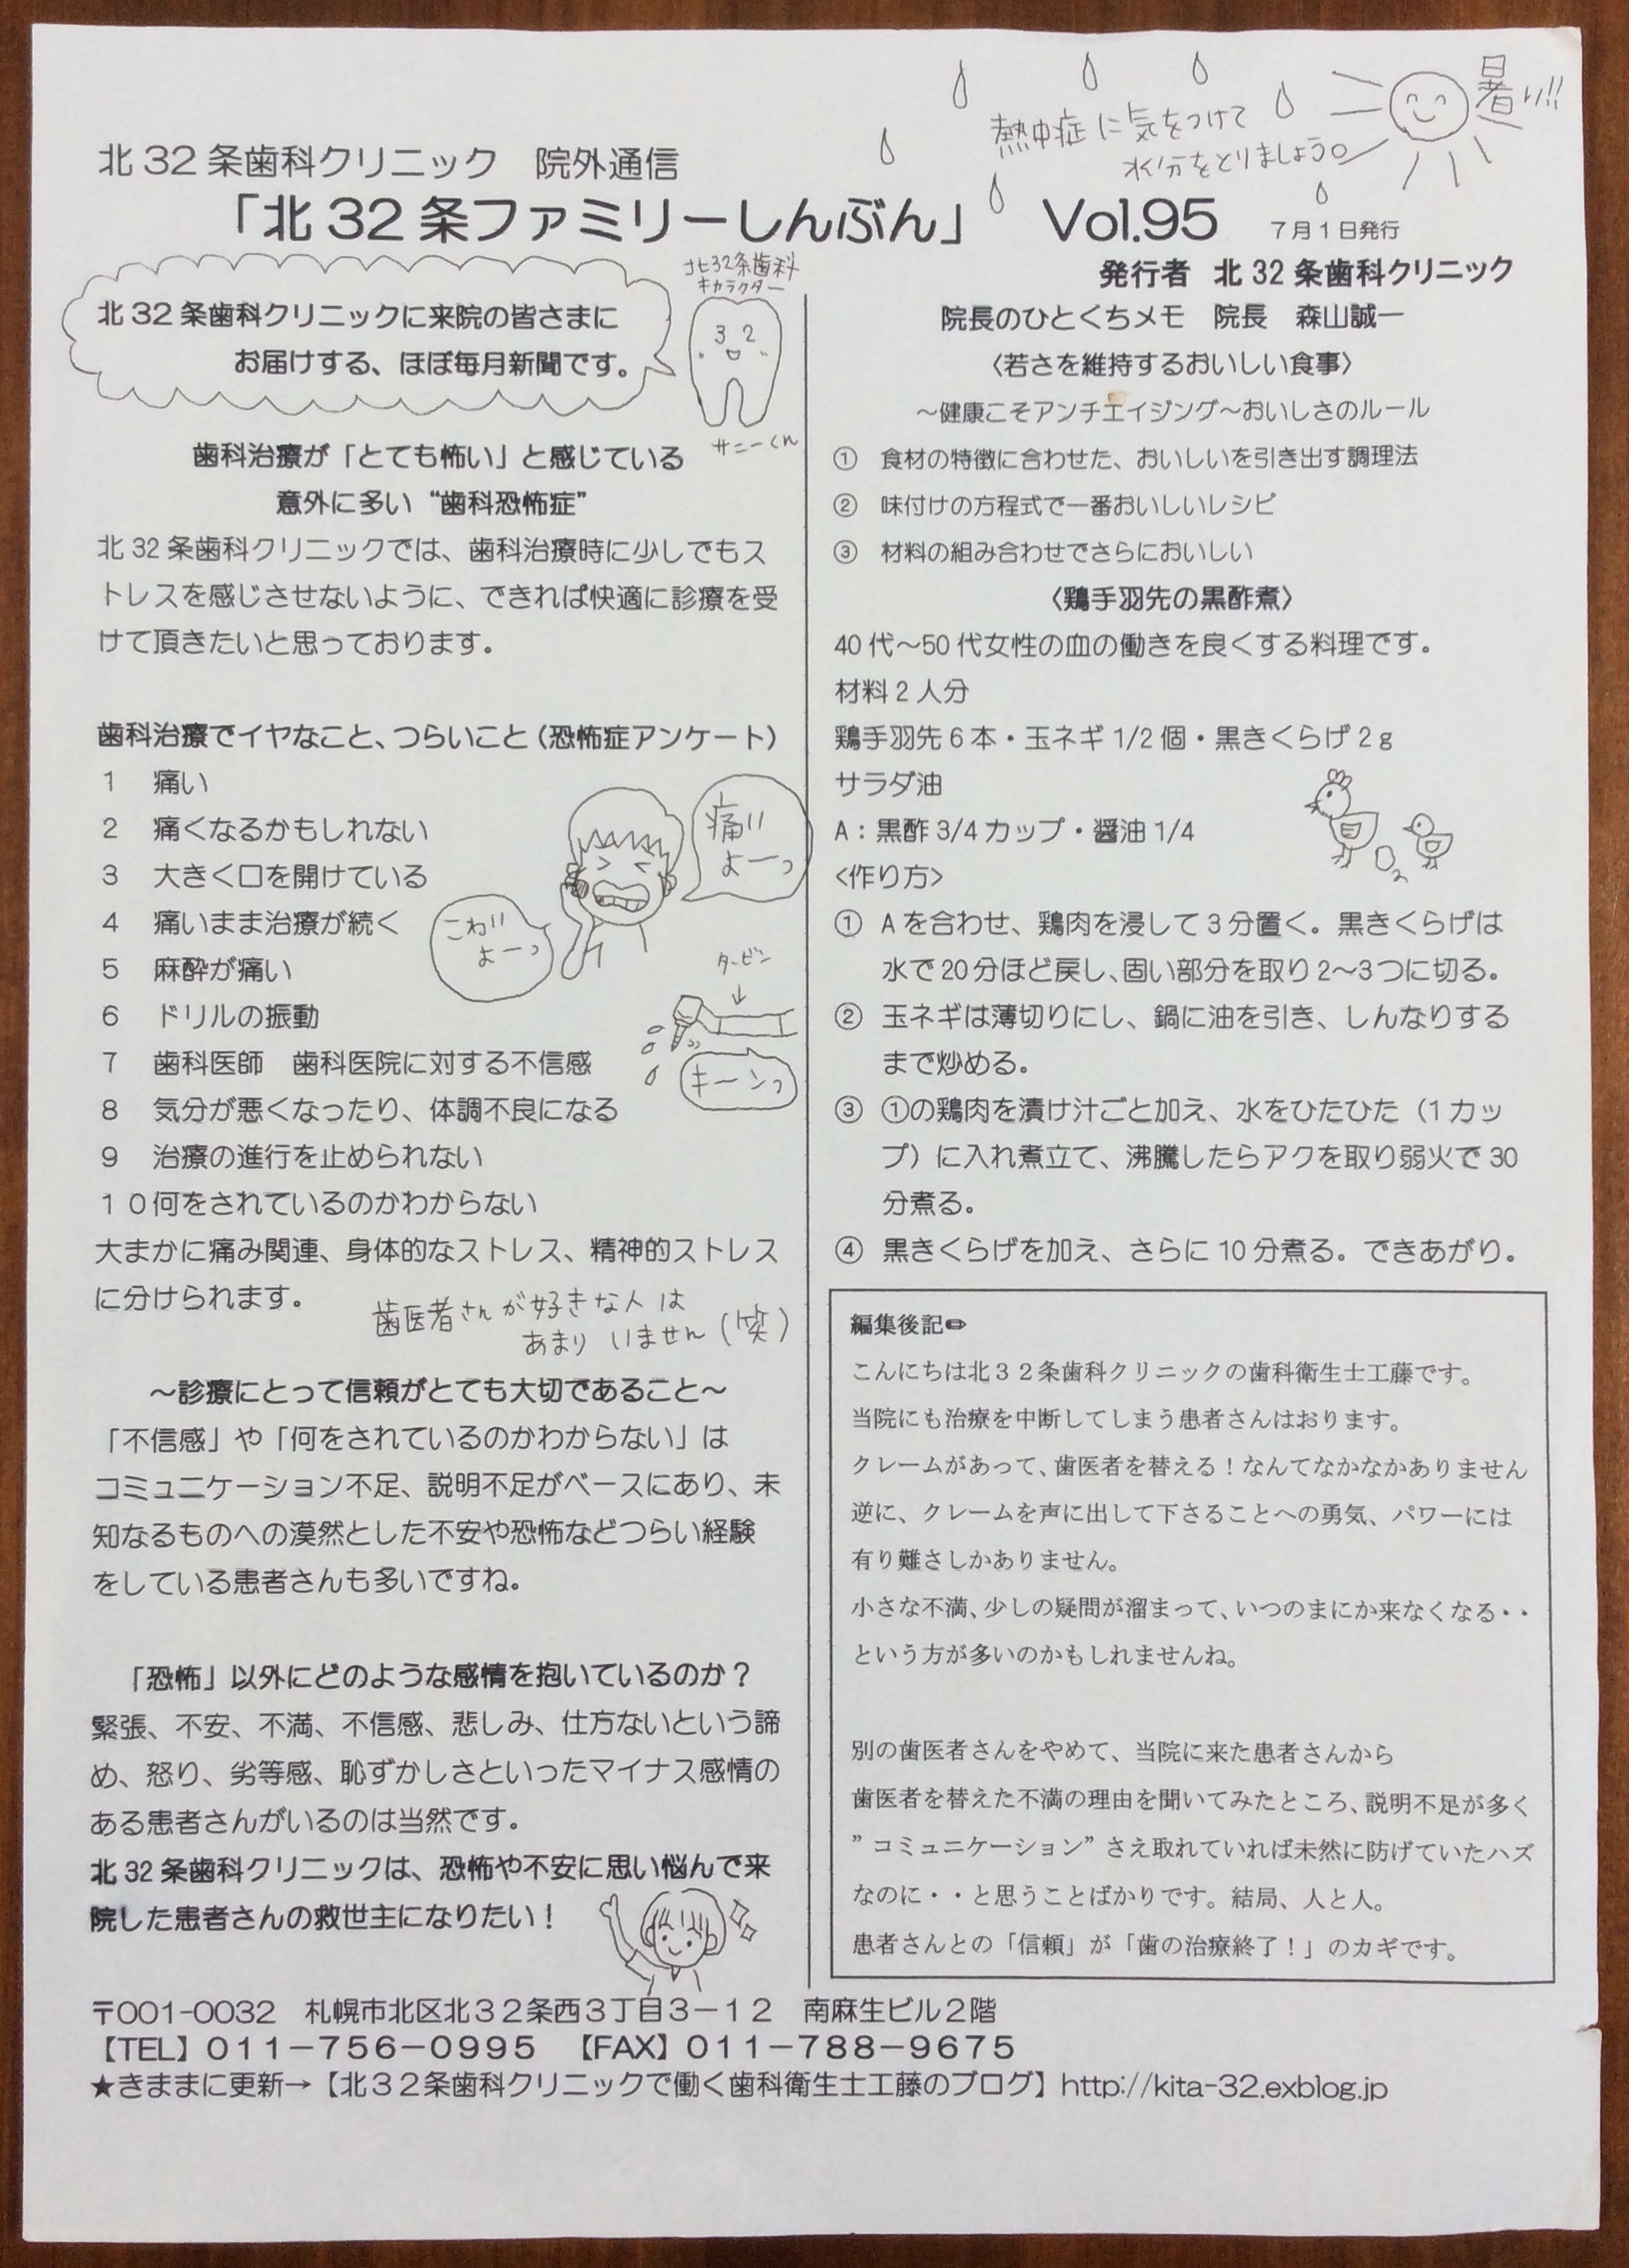 暑い!!
熱中症に気をつけて
水分をとりましょう。
北32条歯科クリニック　院外通信
「北32条ファミリーしんぶん」　Vol.95　7月1日発行
発行者　北32条歯科クリニック
北32条歯科クリニックに来院の皆さまに
お届けする、ほぼ毎月新聞です。
北32条歯科
キャラクター
32
サニーくん
歯科治療が「とても怖い」と感じている
意外に多い“歯科恐怖症”
北32条歯科クリニックでは、歯科治療時に少しでもス
トレスを感じさせないように、できれば快適に診療を受
けて頂きたいと思っております。
歯科治療でイヤなこと、つらいこと（恐怖症アンケート）
1　痛い
2　痛くなるかもしれない
3　大きく口を開けている
4　痛いまま治療が続く
5　麻酔が痛い
6　ドリルの振動
7　歯科医師　歯科医院に対する不信感
8　気分が悪くなったり、体調不良になる
9　治療の進行を止められない
１０何をされているのかわからない
痛い
よーっ
こわい
よーっ
タービン
キーンっ
大まかに痛み関連、身体的なストレス、精神的ストレス
に分けられます。
歯医者さんが好きな人は
あまりいません（笑）
～診療にとって信頼がとても大切であること～
「不信感」や「何をされているのかわからない」は
コミュニケーション不足、説明不足がベースにあり、未
知なるものへの漠然とした不安や恐怖などつらい経験
をしている患者さんも多いですね。
「恐怖」以外にどのような感情を抱いているのか？
緊張、不安、不満、不信感、悲しみ、仕方ないという諦
め、怒り、劣等感、恥ずかしさといったマイナス感情の
ある患者さんがいるのは当然です。
北32条歯科クリニックは、恐怖や不安に思い悩んで来
院した患者さんの救世主になりたい！
院長のひとくちメモ　院長　森山誠一
〈若さを維持するおいしい食事〉
～健康こそアンチエイジング～おいしさのルール
①　食材の特徴に合わせた、おいしいを引き出す調理法
②　味付けの方程式で一番おいしいレシピ
③　材料の組み合わせでさらにおいしい
〈鶏手羽先の黒酢煮〉
40代～50代女性の血の働きを良くする料理です。
材料2人分
鶏手羽先6本・玉ネギ1/2個・黒きくらげ2g
サラダ油
A：黒酢3/4カップ・醤油1/4
<作り方>
①　Aを合わせ、鶏肉を浸して3分置く。黒きくらげは
水で20分ほど戻し、固い部分を取り2～3つに切る。
②　玉ネギは薄切りにし、鍋に油を引き、しんなりする
まで炒める。
③　①の鶏肉を漬け汁ごと加え、水をひたひた（1カッ
プ）に入れ煮立て、沸騰したらアクを取り弱火で30
分煮る。
④　黒きくらげを加え、さらに10分煮る。できあがり。
編集後記✏
こんにちは北３２条歯科クリニックの歯科衛生士工藤です。
当院にも治療を中断してしまう患者さんはおります。
クレームがあって、歯医者を替える！なんてなかなかありません
逆に、クレームを声に出して下さることへの勇気、パワーには
有り難さしかありません。
小さな不満、少しの疑問が溜まって、いつのまにか来なくなる・・
という方が多いのかもしれませんね。
別の歯医者さんをやめて、当院に来た患者さんから
歯医者を替えた不満の理由を聞いてみたところ、説明不足が多く
”コミュニケーション”さえ取れていれば未然に防げていたハズ
なのに・・と思うことばかりです。結局、人と人。
患者さんとの「信頼」が「歯の治療終了！」のカギです。
〒001-0032　札幌市北区北３２条西３丁目３－１２　南麻生ビル２階
【TEL】０１１－７５６－０９９５　【FAX】０１１－７８８－９６７５
★きままに更新→【北３２条歯科クリニックで働く歯科衛生士工藤のブログ】http://kita-32.exblog.jp